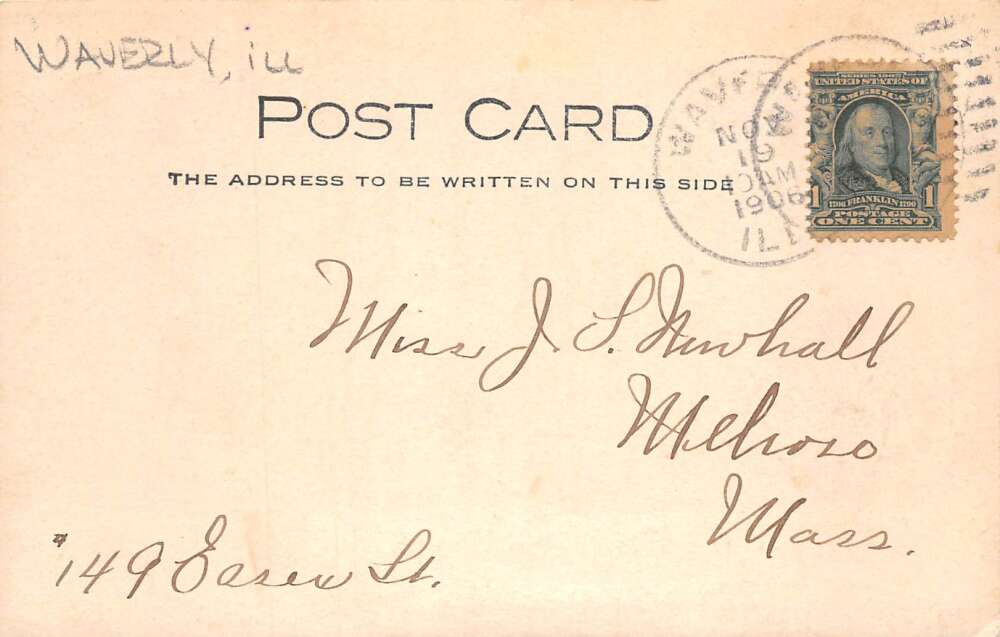 WAVERLY, ILL
POST CARD
THE ADDRESS TO BE WRITTEN ON THIS SIDE
NOV
19
10 AM
1906
ILL
SERIES 1902
UNITED STATES OF
AMERICA
1 1
1706 FRANKLIN 1790
POSTAGE
ONE CENT
Miss J. S. Newhall
Melrose
Mass.
149 Essex St.